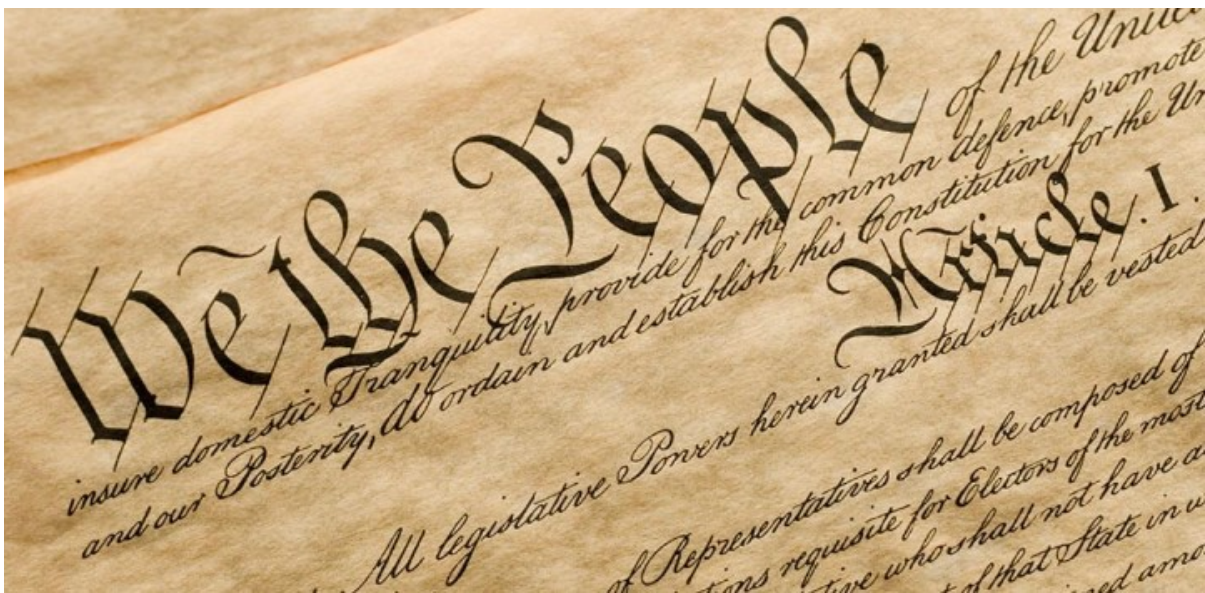 We the People of the United
insure domestic Tranquility, provide for the common defence, promote
and our Posterity, do ordain and establish this Constitution for the Un
Article. I.
All legislative Powers herein granted shall be vested
of Representatives shall be composed of
tions requisite for Electors of the most
tive who shall not have a
of that State in w
ned amo